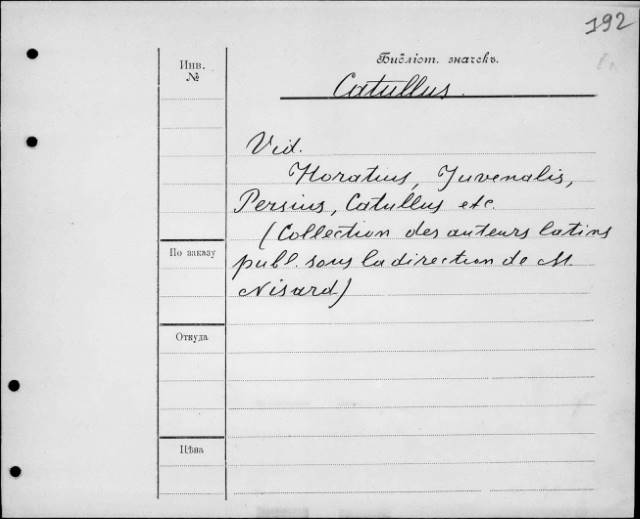 192
Библіот. значекъ.
Инв.
№
Catullus.
Vid.
Horatius, Juvenalis,
Persius, Catullus etc.
(Collection des auteurs latins
По заказу
publ. sous la direction de M.
Nisard)
Откуда
Цѣна